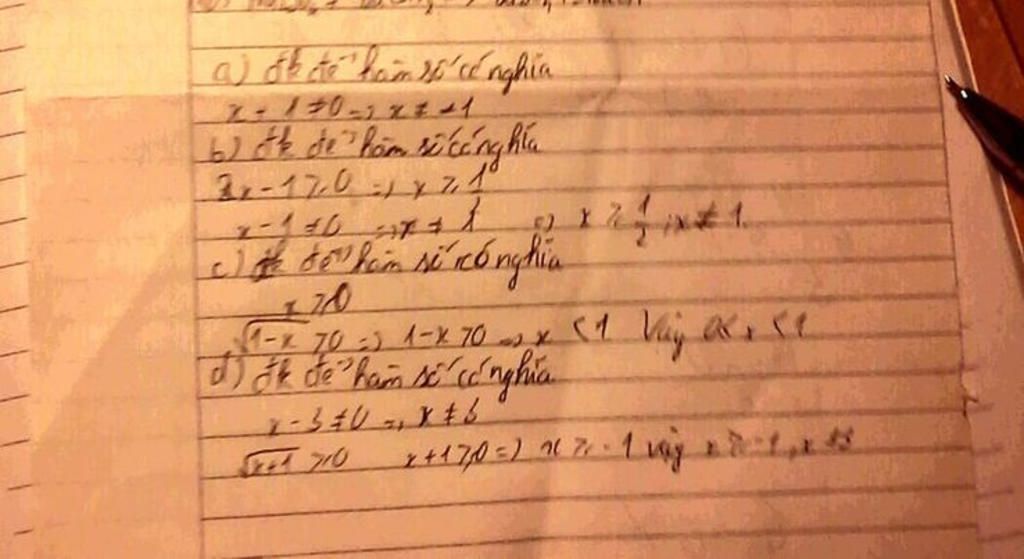 a) đk để hàm số có nghĩa
x - 1 ≠ 0 => x ≠ 1
b) đk để hàm số có nghĩa
2x - 1 ≥ 0 => x ≥ 1
x - 1 ≠ 0 => x ≠ 1 => x ≥ 1/2 ; x ≠ 1.
c) đk để hàm số có nghĩa
x ≥ 0
√1-x > 0 => 1-x > 0 => x < 1 Vậy x < 1
d) đk để hàm số có nghĩa
x - 3 ≠ 0 => x ≠ 3
√x+1 ≥ 0 x+1 ≥ 0 => x ≥ -1 vậy x ≥ -1, x ≠ 3